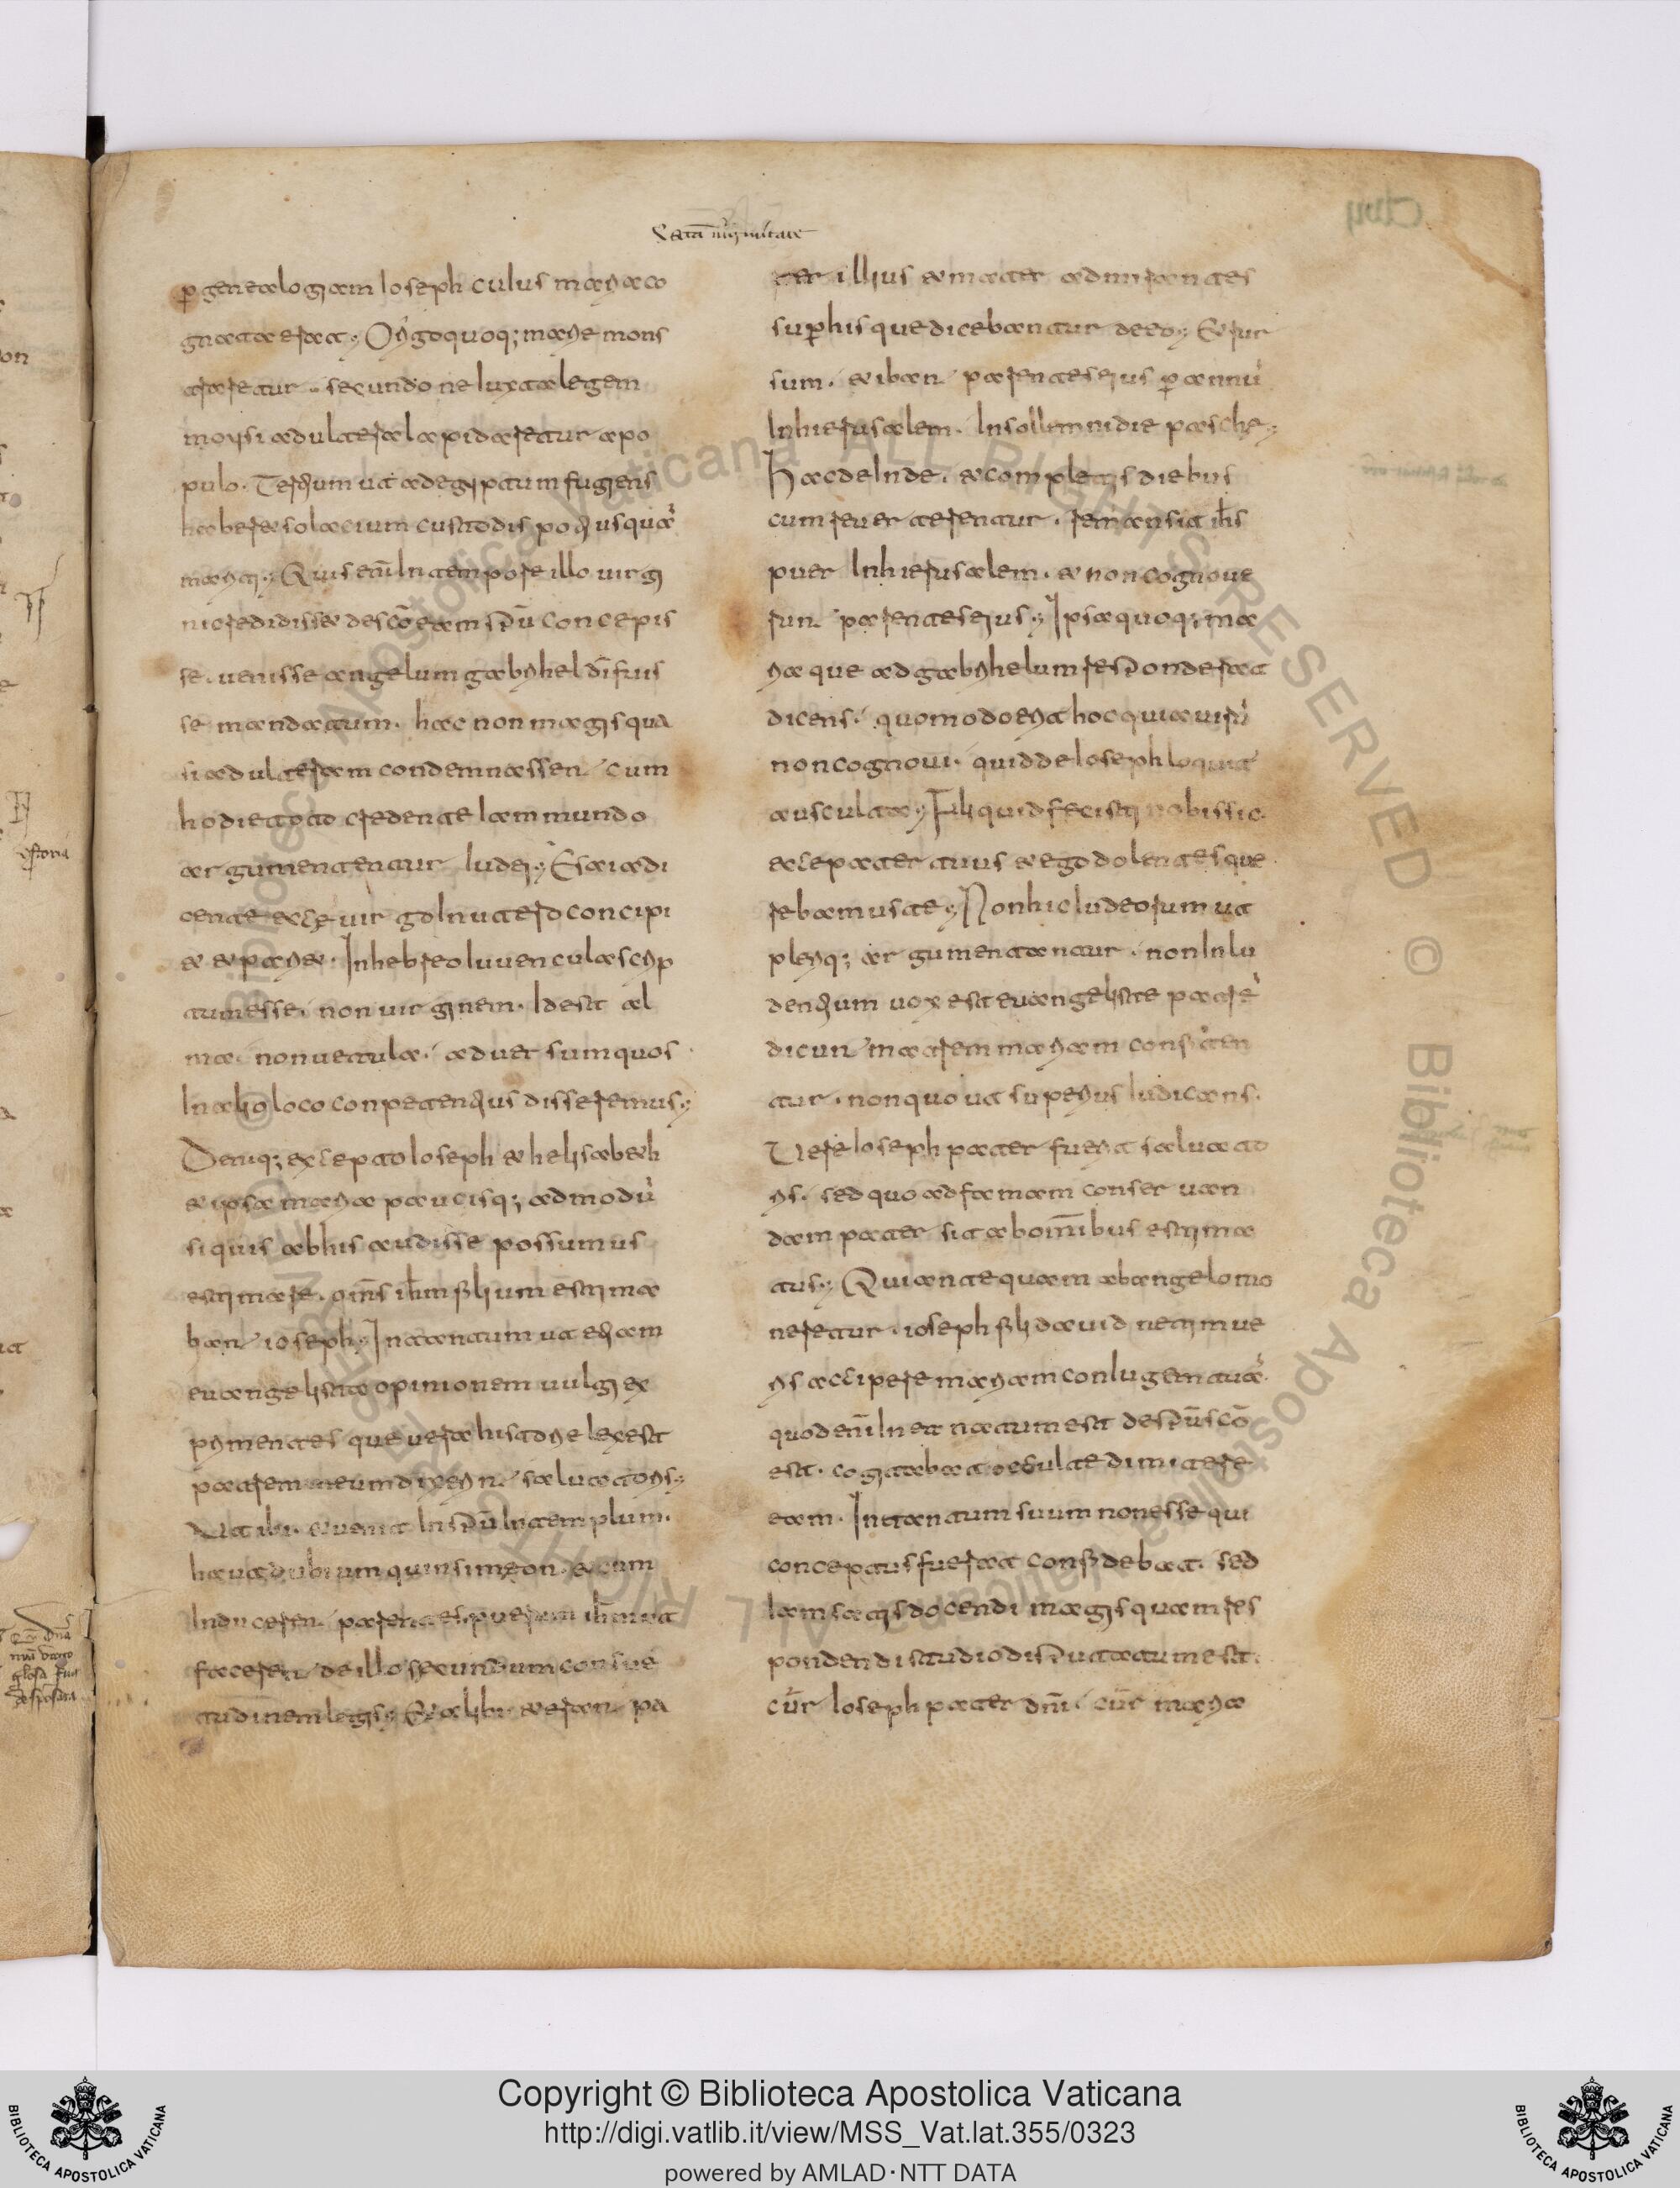 p̱ genealogiam ioseph cuius maria co
gnata erat; Origo quoq; marie mons
traretur. secundo ne iuxta legem
moysi adultera lapidaretur a po
pulo. Tertium ut ad egyptum fugiens
haberet solacium custodis potius quā
mariti; Quis enī In tempore illo virgi
ni credidisset de scō eam spū concepis
se. uenisse angelum gabrihel dī fuis
se mandatum. haec non magis qua
si adulteram condemnassent cum
hodie toto credente iam mundo
argumententur iudei; Esaia di
cente ecce uirgo In utero concipi
et et pariet. In hebreo iuuencula scrip
tum esse. non uirginem. Id est al
ma. non uetula. aduersum quos
In alio loco conpetentius disseremus;
Deniq; excepto ioseph et helisabeth
et ipsa maria paucisq; admodū
si quis ab his audisse possumus
estimare. omīs ihm filium estima
bant ioseph; In tantum ut etiam
euangelista opinionem uulgi ex
primentes que uera historie lex est
patrem eum dixerint saluatoris;
Ut ibi. et uenit In spū In templum.
haut dubium quin simeon. et cum
Inducerent parentes puerum ihm ut
facerent de illo secundum consue
tudinem legis; Et alibi et erant pa
Satā virginitatē
ter illius et mater admirantes
sup̱ his que dicebantur de eo; Et rur
sum. et ibant parentes eius p̱ annū
In hierusalem. In sollemni die pasche;
Hac deinde. et completis diebus
cum reuerterentur. remansit ihs
puer In hierusalem. et non cognoue
runt parentes eius; Ipsa quoq; ma
ria que ad gabrihelum responderat
dicens. quomodo erit hoc quia uirū
non cognoui. quid de ioseph loquit
ausculta; Fili quid fecisti nobis sic.
ecce pater tuus et ego dolentes que
rebamus te; Non hic iudeorum ut
pleriq; argumentantur. non In lu
dentium uox est euangeliste patrē
dicunt matrem mariam confiten
tur. non quo ut superius Iudicans.
Vere ioseph pater fuerit saluato
ris. sed quo ad famam conseruan
dam pater sit ab omnibus estima
tus; Qui antequam ab angelo mo
neretur. ioseph fili dauid ne timue
ris accipere mariam coniugem tuā.
quod enī In ea natum est de spū scō
est. cogitabat occulte dimittere
eam. In tantum suum non esse qui
conceptus fuerat confidebat. sed
iam satis docendi magis quam res
pondendi studio disputatum est.
cur ioseph pater dnī. cur maria
Copyright © Biblioteca Apostolica Vaticana
http://digi.vatlib.it/view/MSS_Vat.lat.355/0323
powered by AMLAD·NTT DATA
BIBLIOTECA APOSTOLICA VATICANA
BIBLIOTECA APOSTOLICA VATICANA